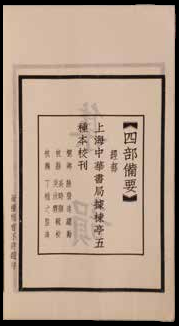 【四部備要】
經部
上海中華書局據楝亭五
種本校刊
桐鄉 陸費逵 總勘
杭縣 高時顯 輯校
杭縣 吳汝霖 輯校
杭縣 丁輔之 監造
版權所有不許翻印